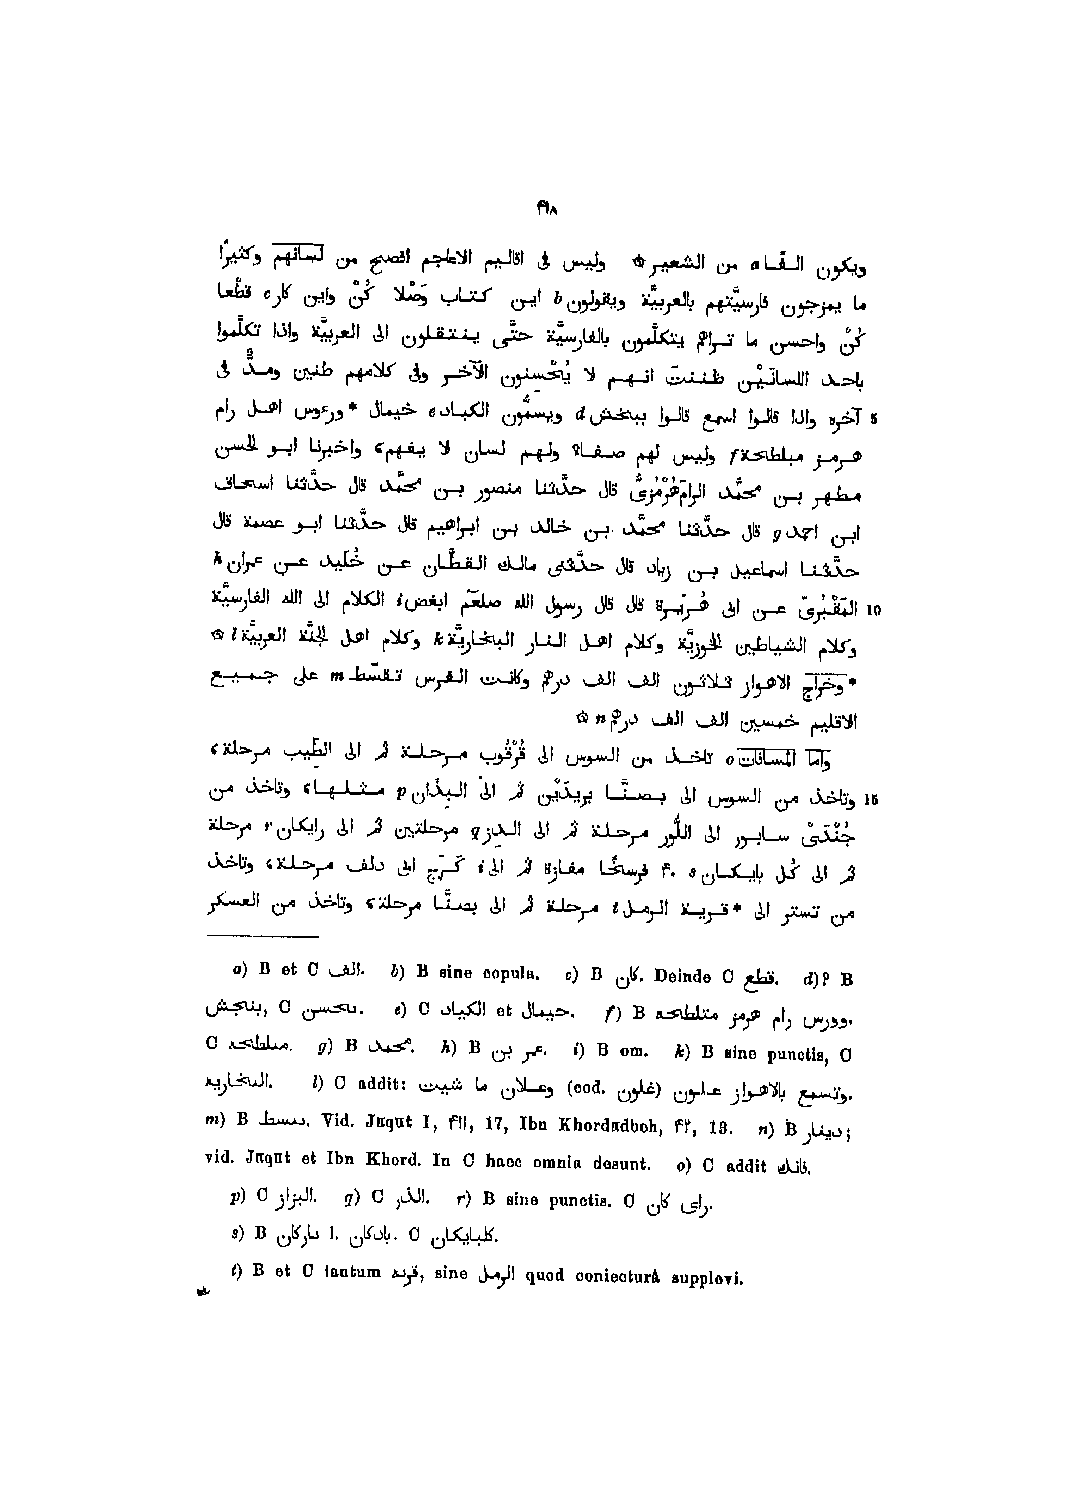 ٤١٨
ويكون القَّاه a من الشعير ۞ وليس فى اقاليم الاعاجم افصح من لسانهم وكثيرًا
ما يمزجون فارسيّتهم بالعربيّة ويقولون b اين كتاب وَصْلا كُنْ واين كار c قطْعا
كُنْ واحسن ما تراهم يتكلّمون بالفارسيّة حتّى ينتقلون الى العربيّة واذا تكلّموا
باحد اللسانَيْن ظننتَ انهم لا يُحْسنون الآخر وفى كلامهم طنين ومدٌّ فى
5 آخره واذا قالوا اسمع قالوا ببخش d ويسمُّون الكباد e خيمال * ورءوس اهل رام
هرمز مبلطحة f وليس لهم صفاء ولهم لسان لا يفهم، واخبرنا ابو الحسن
مطهر بن محمّد الرامَهُرْمُزىُّ قال حدّثنا منصور بن محمّد قال حدّثنا اسحاف
ابن احمد g قال حدّثنا محمّد بن خالد بن ابراهيم قال حدّثنا ابو عصمة قال
حدّثنا اسماعيل بن زياد قال حدّثنى مالك القطّان عن خُليد عن عمران h
10 المَقْبُرىّ عن ابى هُرَيْرة قال قال رسول الله صلعم ابغض i الكلام الى الله الفارسيّة
وكلام الشياطين الخوزيّة وكلام اهل النار البخاريّة k وكلام اهل الجنّة العربيّة l ۞
* وخراج الاهواز ثلاثون الف الف درهم وكانت الفرس تقسّط m على جميع
الاقليم خمسين الف الف درهم n ۞
وامّا المسافات o تاخذ من السوس الى قُرْقُوب مرحلة ثم الى الطِّيب مرحلة،
15 وتاخذ من السوس الى بصنَّا بريدَيْن ثم الى البذان p مثلها، وتاخذ من
جُنْدَىْ سابور الى اللُّور مرحلة ثم الى الدز q مرحلتين ثم الى رايكان r مرحلة
ثم الى كُل بايكان s ۴٠ فرسخًا مفازة ثم الى، كَرَج ابى دلف مرحلة، وتاخذ
من تستر الى * قرية الرمل t مرحلة ثم الى بصنَّا مرحلة، وتاخذ من العسكر
a) B et C الف. b) B sine copula. c) B كان. Deinde C قطع. d)? B
بنجش, C بتحسن. e) C الكياد et حيمال. f) B وورس رام هرمز متلطحه,
C مبلطحه. g) B محمد. h) B عمر بن. i) B om. k) B sine punctis, C
البخاريه. l) C addit: وتسمع بالاهواز علون (cod. غلون) وعلان ما شيت.
m) B بسط. Vid. Jaqut I, ٤١١, 17, Ibn Khordadbeh, ٤٢, 13. n) B دينار;
vid. Jaqut et Ibn Khord. In C haec omnia desunt. o) C addit فانك.
p) C البزاز. q) C الذر. r) B sine punctis. C راى كان.
s) B باركان l. بادكان. C كلبايكان.
t) B et C tantum قرية, sine الرمل quod coniecturâ supplevi.